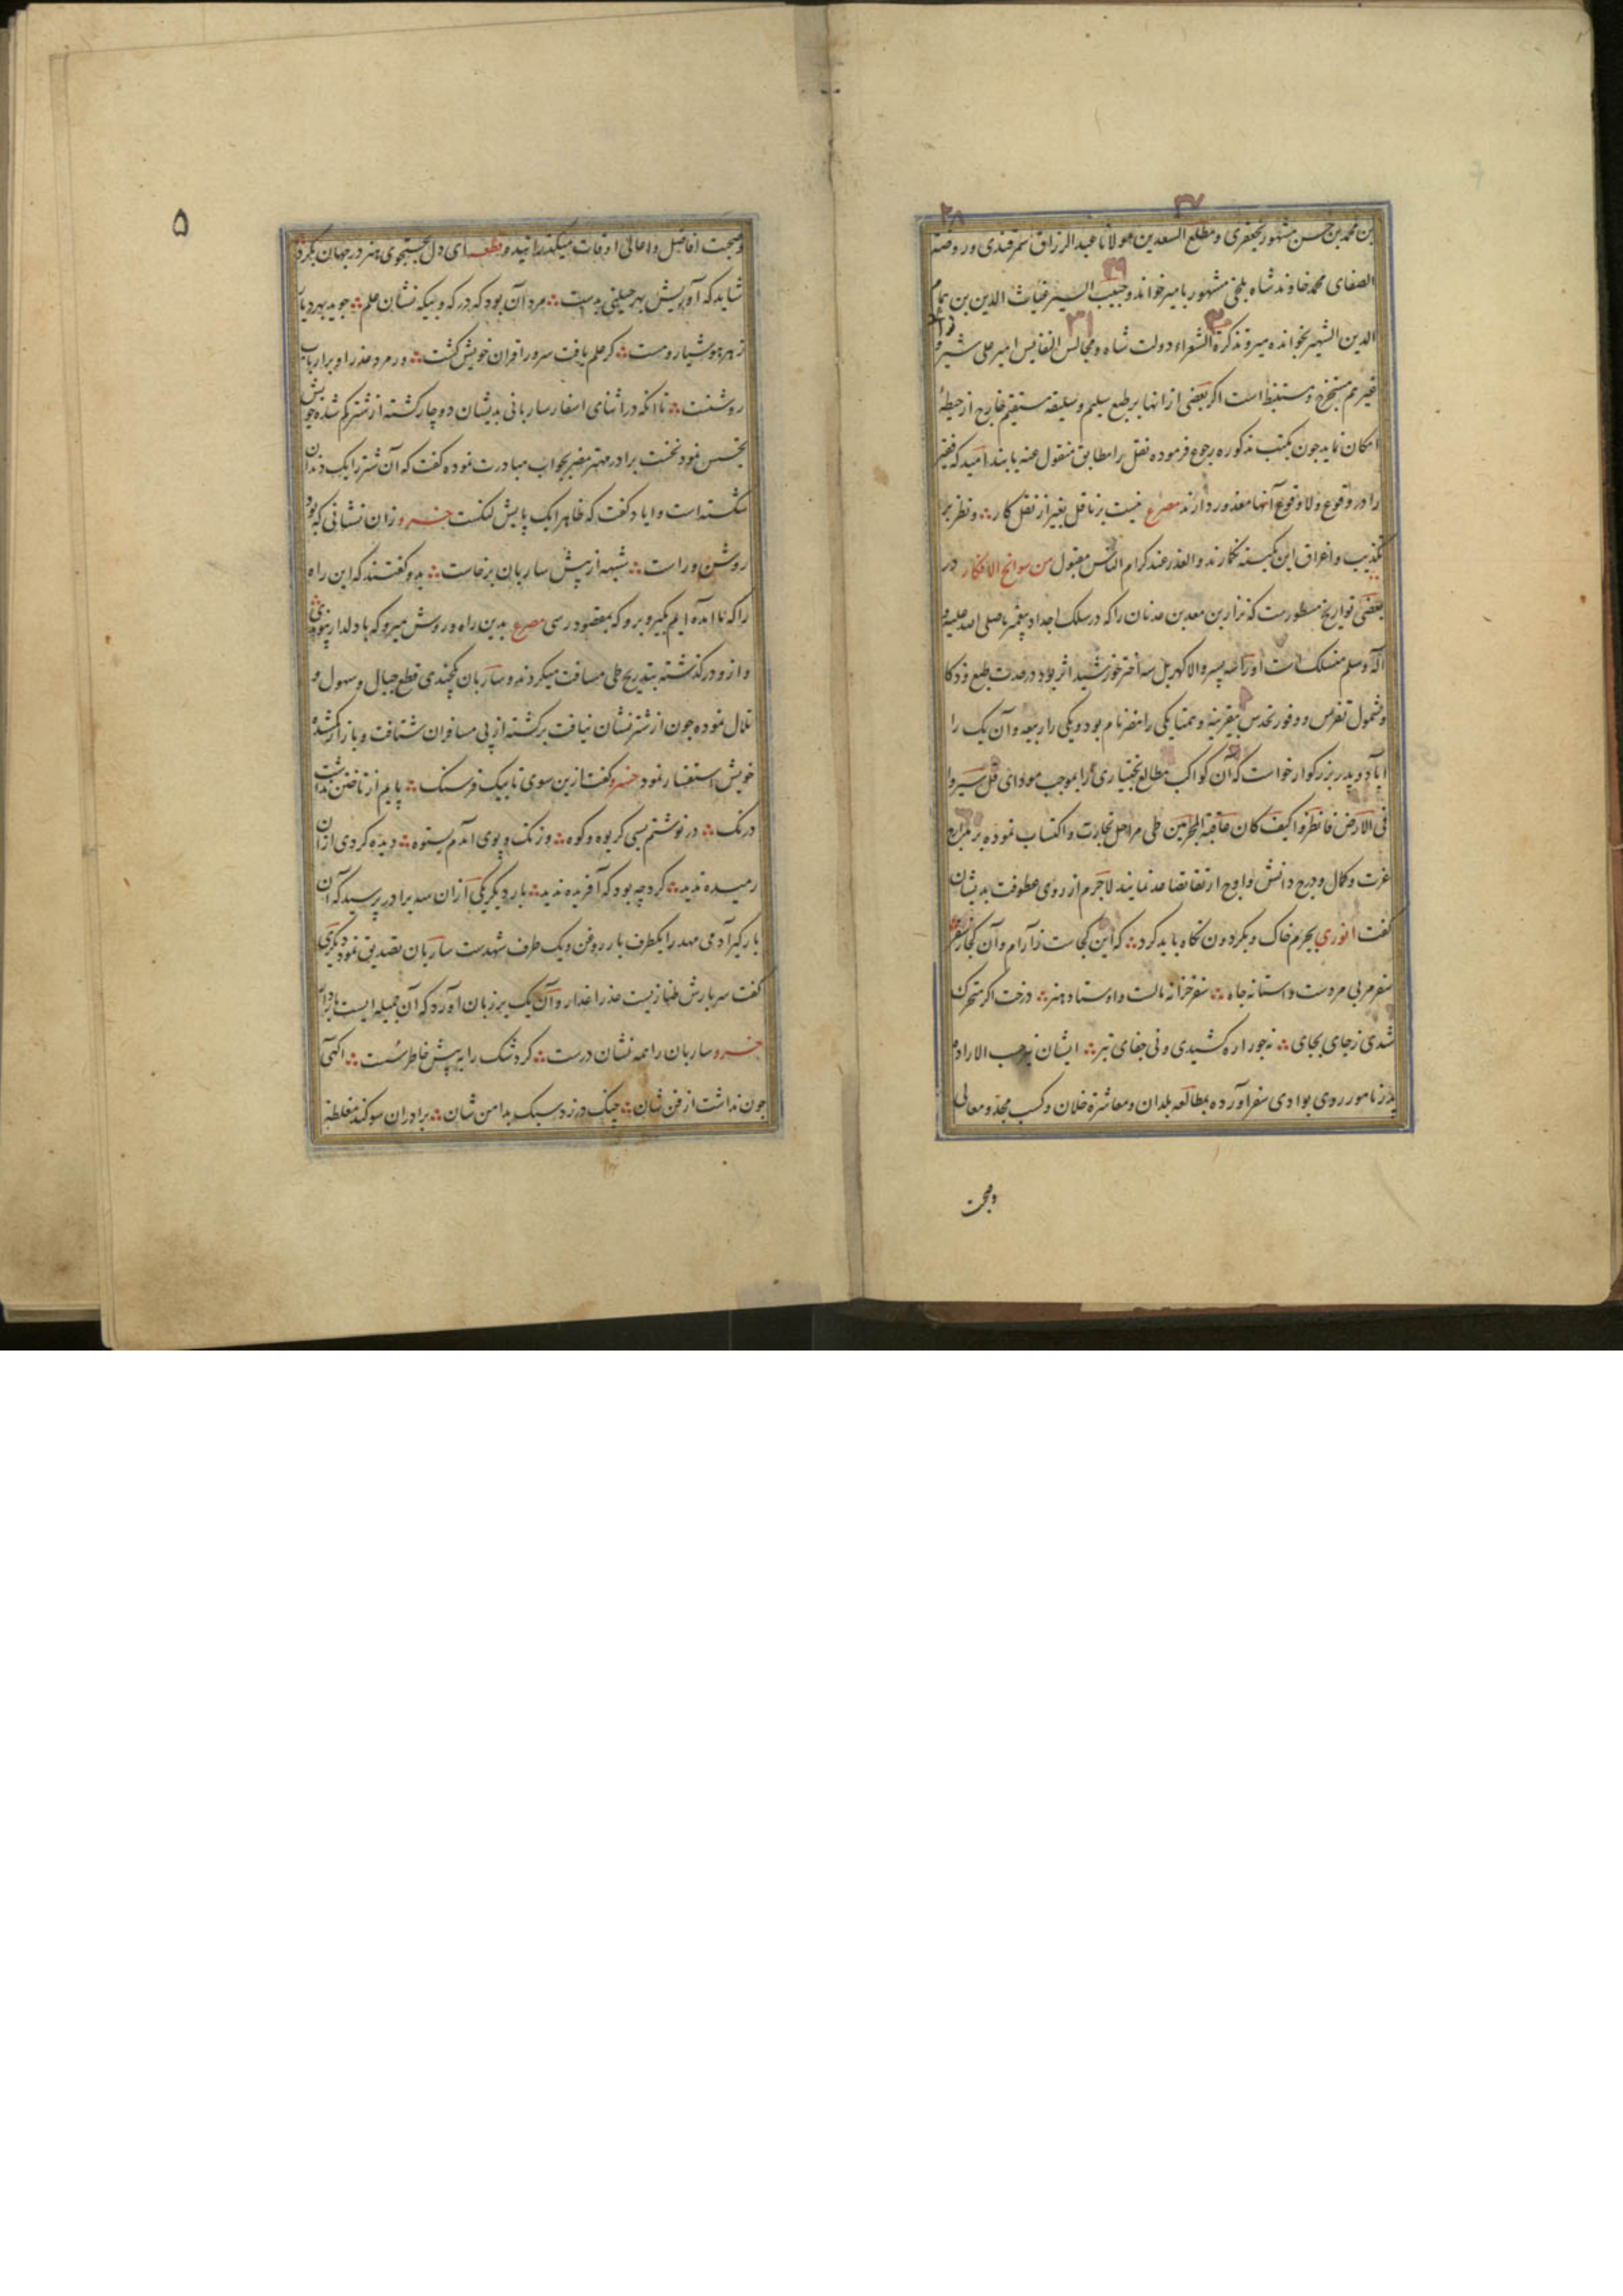 ۲۷ ۲۸
بن محمد بن حسن مشهور بجعفری و مطلع السعدین مولانا عبد الرزاق سمرقندی و روضة
۲۹
الصفای محمد خاوند شاه بلخی مشهور بامیرخواند و حبیب السیر غیاث الدین بن همام
۳۰ ۳۱
الدین الشهیر بخواند میر و تذکرة الشعراء دولت شاه و مجالس النفایس امیر علی شیر و
غیر هم مستخرج و مستنبط است اکر بعضی از انها بر طبع سلیم و سلیقه مستقیم خارج از حیطهٔ
امکان نماید جون بکتب مذکوره رجوع فرموده نقل را مطابق منقول عنه یابند امید که فقیر
را در وقوع و لا وقوع آنها معذور دارند مصرع نیست بر ناقل بغیر از نقل کار و نظر بر
تکذیب و اغراق این کمینه نکمارند و العذر عند کرام الناس مقبول من سوانح الافکار در
بعضی تواریخ مسطورست که نزار بن معد بن عدنان را که در سلک اجداد پیغمبر ما صلی الله علیه و
آله و سلم منسلک است او را سه پسر والا کهر بل سه اختر خورشید اثر بود در حدت طبع و ذکا
و شمول تفرس و وفور تحدس بیقرینه و همتا یکی را مضر نام بود و یکی را ربیعه و آن یک را
ایاد و پدر بزرکوار خواست که آن کواکب مطالع بختیاری را بموجب مودای قل سیروا
فی الارض فانظروا کیف کان عاقبة المجرمین طی مراحل تجارت و اکتساب نموده بر مدارج
عزت و کمال و درج دانش و اوج ارتقا تصاعد نمایند لاجرم از روی عطوفت بدیشان
کفت انوری بجرم خاک و بکردون نکاه باید کرد که این کجاست ز آرام و آن کجا ز سفر
سفر مربی مردست و استانه جاه سفر خزانه مالست و اوستاد هنر درخت اکر متحرک
شدی ز جای بجای نه جور اره کشیدی و نی جفای تبر ایشان بموجب الاراده
پدر نامور روی بوادی سفر آورده بمطالعه بلدان و معاشرة خلان و کسب مجد و معالی
وصحبت
۵
وصحبت افاضل و اهالی اوقات میکذرانیدند و قطعه ای دل بجستجوی هنر در جهان بکرد
شاید که آوریش بهر حیلتی بدست مرد آن بود که در که و بیکه نشان علم جوید بهر دیار
ز هر هوشیار و مست کر علم یافت سرور اقران خویش کشت ور مرد عذر او بر ارباب
روشنست تا انکه در اثنای اسفار ساربانی بدیشان دوچار کشته از شتر کم شده خویش
تجسس نمود نخست برادر مهتر مضر بجواب مبادرت نموده کفت که آن شتر را یک دندان
شکسته است و ایاد کفت که ظاهرا یک پایش لنکست خسرو زان نشانی که بود
روشن و راست شبهه از پیش ساربان برخاست بدو کفتند که این راه
را که ما امده ایم بکیر و برو که بمقصود رسی مصرع بدین راه و روش میرو که با دلدار پیوندی
و ازو در کذشته بتدریج طی مسافت میکردند و ساربان بچندی قطع جبال و سهول و
تلال نموده جون از شتر نشان نیافت برکشته از پی مسافران شتافت و باز از کمشدهٔ
خویش استفسار نمود خسرو کفت ازین سوی تا بیک فرسنک پایم از تاختن نداشت
درنک در نوشتم بسی کریوه و کوه وز تک و پوی امدم بستوه دیده کردی ازان
رمیده ندید کرد چه بود که آفریده ندید بار دیکر یکی از ان سه برادر پرسید که آن
بارکیر آدمی مهد را یکطرف بار روغن و یک طرف شهدست ساربان تصدیق نمود دیکری
کفت سر بارش طنازیست عذرا عذار و آن یک بر زبان آورد که آن جمیله ایست باردار
خسرو ساربان را همه نشان درست کرد شک را به پیش خاطر سست اکهی
جون نداشت از فن شان جنک در زد سبک بدامن شان برادران سوکند مغلظه